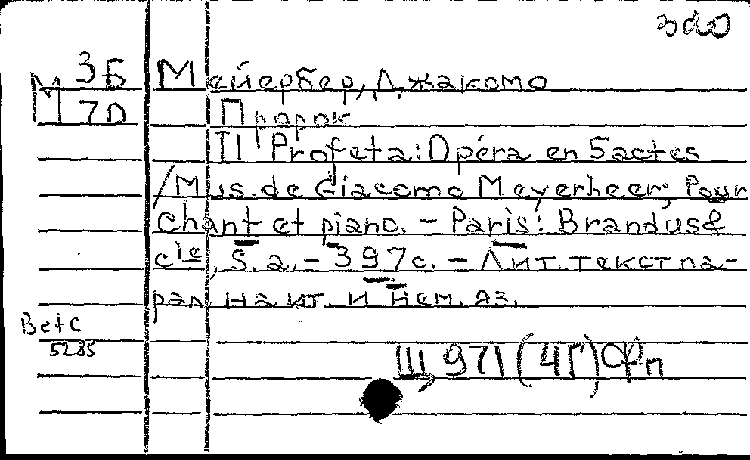 3Б Мейербер, Джакомо
М 70 Пророк
Il Profeta: Opéra en 5 actes
/Mus. de Giacomo Meyerbeer; Pour
chant et piano. – Paris: Brandus &
cie, s.a. – 397 с. – Лит. текст па-
рал. на ит. и нем. яз.
Ветс
5285
Щ 971 (4Г) Фп